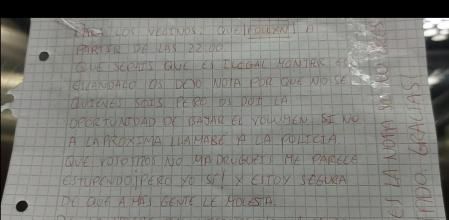 PARA LOS VECINOS: QUE FOLLEN A
PARTIR DE LAS 22:00
QUE SEPAIS QUE ES ILEGAL MONTAR
ESCANDALO OS DEJO NOTA POR QUE NO SE
QUIENES SOIS PERO OS DOY LA
OPORTUNIDAD DE BAJAR EL VOLUMEN, SI NO
A LA PROXIMA LLAMARE A LA POLICIA
QUE VOSOTROS NO MADRUGUEIS ME PARECE
ESTUPENDO ¡PERO YO SÍ! Y ESTOY SEGURA
DE QUE A MAS GENTE LE MOLESTA.
ES LA NOTA
GRACIAS!